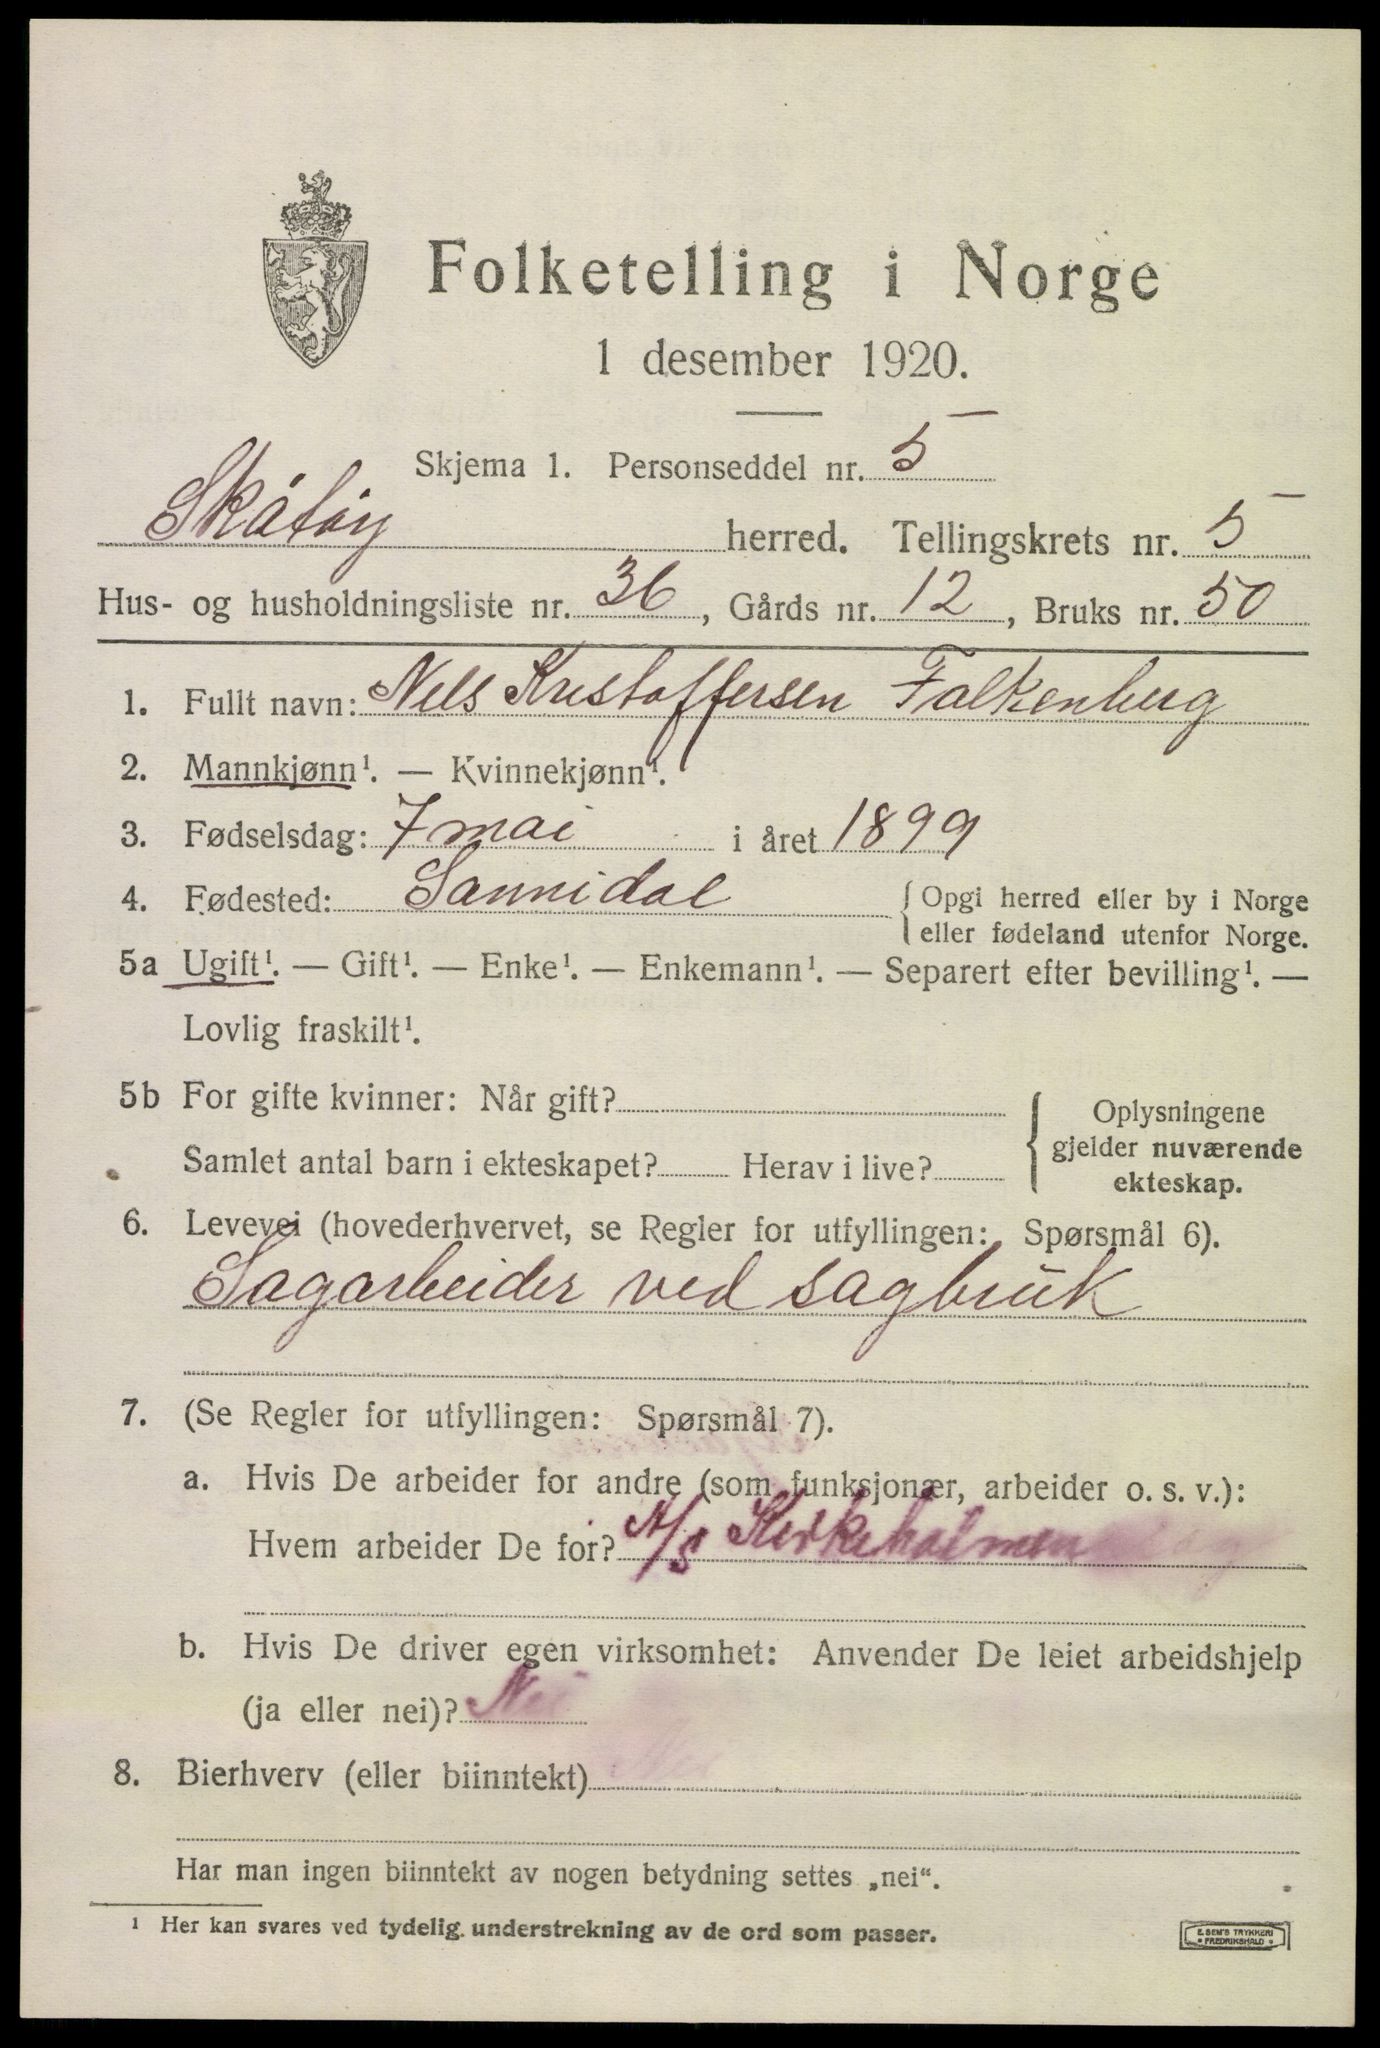 Folketelling i Norge
1 desember 1920.
Skjema 1. Personseddel nr. 5
Skåtøy herred. Tellingskrets nr. 5
Hus- og husholdningsliste nr. 36, Gårds nr. 12, Bruks nr. 50
1. Fullt navn: Nils Kristoffersen Falkenberg
2. Mannkjønn¹. — Kvinnekjønn¹.
3. Fødselsdag: 7 mai i året 1899
4. Fødested: Sannidal { Opgi herred eller by i Norge
eller fødeland utenfor Norge.
5a Ugift¹. — Gift¹. — Enke¹. — Enkemann¹. — Separert efter bevilling¹. —
Lovlig fraskilt¹.
5b For gifte kvinner: Når gift?
Samlet antal barn i ekteskapet? Herav i live?
{ Oplysningene
gjelder nuværende
ekteskap.
6. Levevei (hovederhvervet, se Regler for utfyllingen: Spørsmål 6).
Sagarbeider ved sagbruk
7. (Se Regler for utfyllingen: Spørsmål 7).
a. Hvis De arbeider for andre (som funksjonær, arbeider o. s. v.):
Hvem arbeider De for? A/S Kirkeholmen
b. Hvis De driver egen virksomhet: Anvender De leiet arbeidshjelp
(ja eller nei)? Nei
8. Bierhverv (eller biinntekt) Nei
Har man ingen biinntekt av nogen betydning settes „nei“.
¹ Her kan svares ved tydelig understrekning av de ord som passer.
E. SEM'S TRYKKERI
FREDRIKSHALD